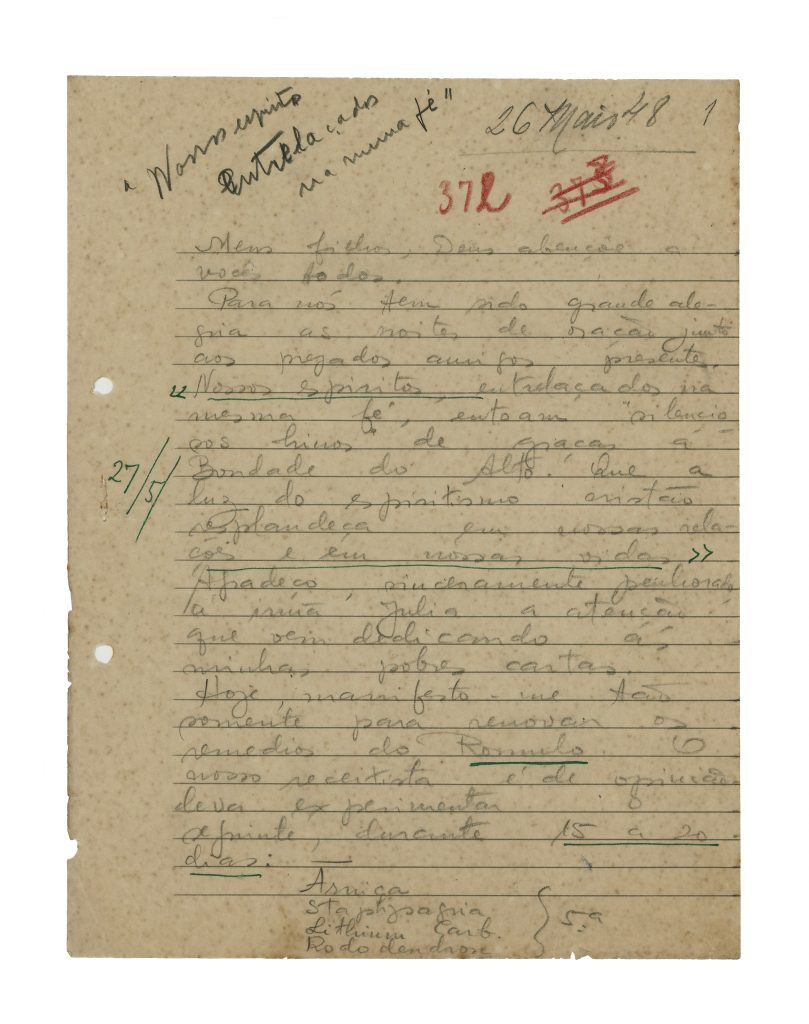 "Nosso espirito
Entrelaçados
na mesma fé"
26 Maio 48 1
372 373
Meus filhos, Deus abençoe a
vocês todos.
Para nós tem sido grande ale-
gria as noites de oração junto
aos prezados amigos presente.
"Nossos espiritos, entrelaçados na
mesma fé, entoam "silencio
sos hinos" de graças á
Bondade do Alto. Que a
27/5
luz do espiritismo cristão
resplandeça em nossas rela-
ções e em nossas vidas"
Agradeço, sinceramente penhorado
á irmã Julia a atenção
que vem dedicando ás
minhas pobres cartas.
Hoje, manifesto-me tão
somente para renovar os
remedios do Romulo. O
nosso receitista é de opinião
deva experimentar o
seguinte, durante 15 a 20
dias: —
Arnica
Staphysagria
Lithium Carb.
Rododendron
5.ª